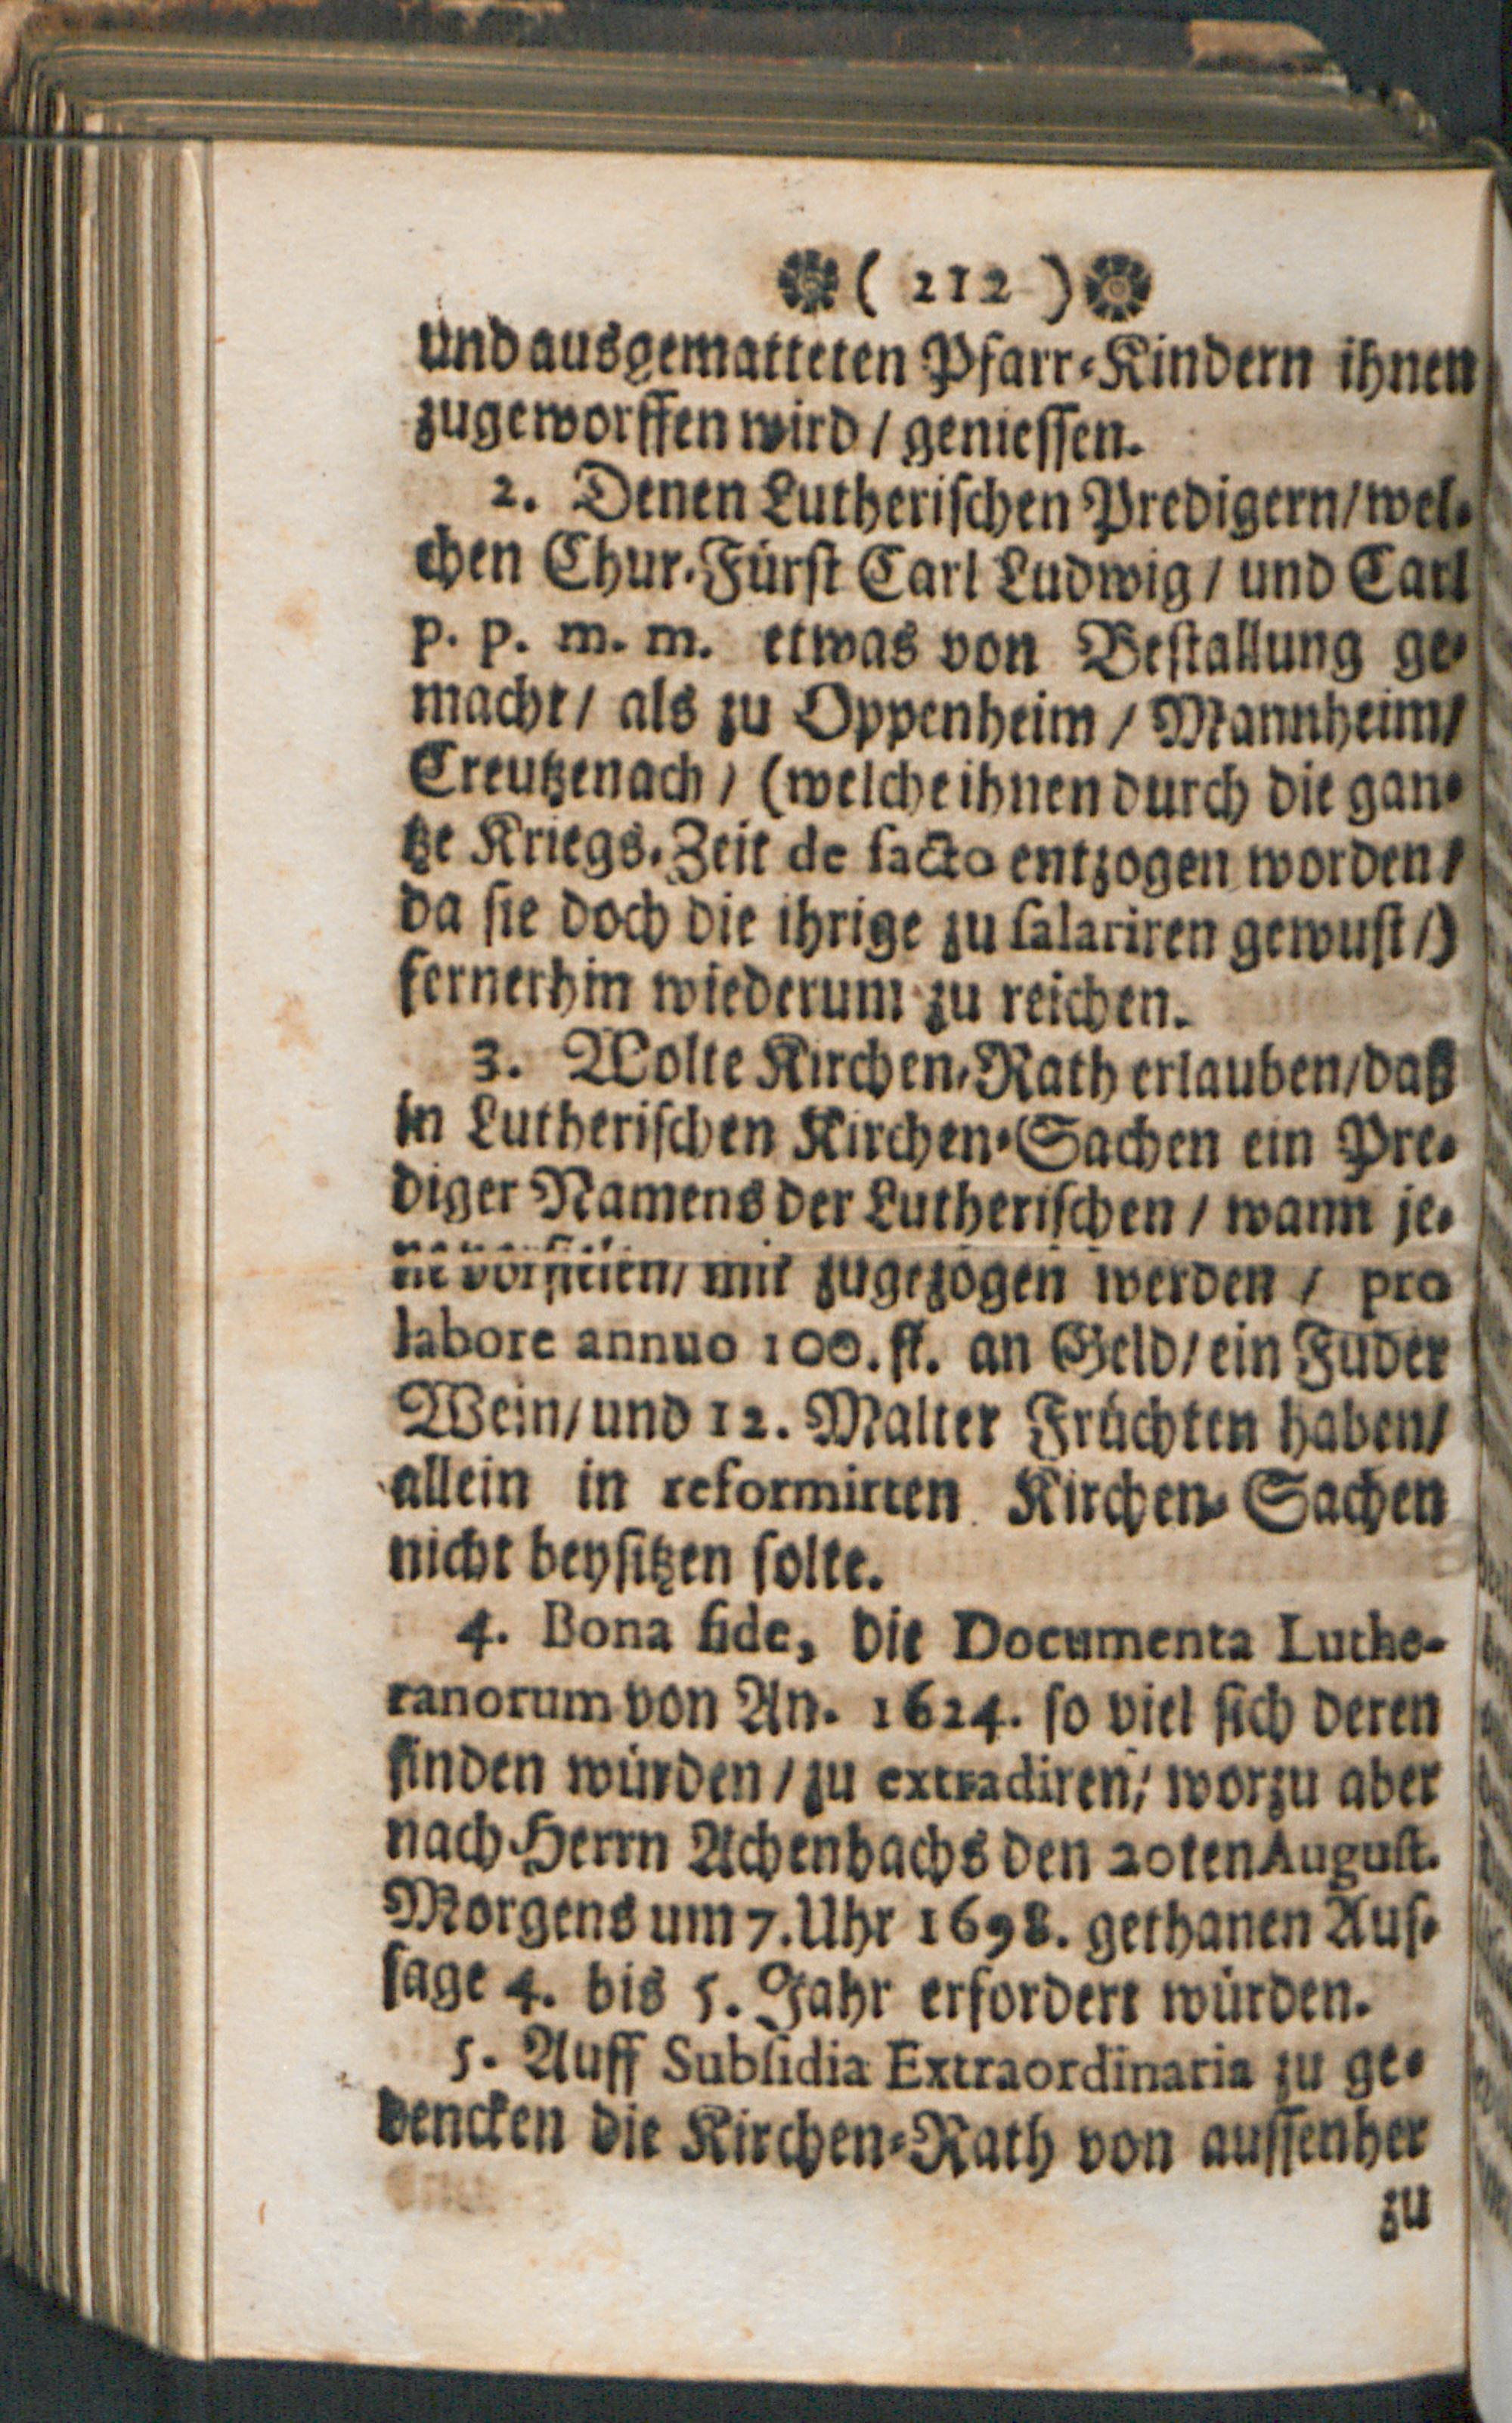 ( 212 )
und ausgematteten Pfarr-Kindern ihnen
zugeworffen wird / geniessen.
2. Denen Lutherischen Predigern / wel-
chen Chur-Fürst Carl Ludwig / und Carl
p. p. m. m. etwas von Bestallung ge-
macht / als zu Oppenheim / Mannheim /
Creutzenach / (welche ihnen durch die gan-
tze Kriegs-Zeit de facto entzogen worden /
da sie doch die ihrige zu salariren gewust /)
fernerhin wiederum zu reichen.
3. Wolte Kirchen-Rath erlauben / daß
in Lutherischen Kirchen-Sachen ein Pre-
diger Namens der Lutherischen / wann je-
ne vorfielen / mit zugezogen werden / pro
labore annuo 100. fl. an Geld / ein Fuder
Wein / und 12. Malter Früchten haben /
allein in reformirten Kirchen-Sachen
nicht beysitzen solte.
4. Bona fide, die Documenta Luthe-
ranorum von An. 1624. so viel sich deren
finden würden / zu extradiren; worzu aber
nach Herrn Achenbachs den 20ten August.
Morgens um 7. Uhr 1698. gethanen Aus-
sage 4. bis 5. Jahr erfordert würden.
5. Auff Subsidia Extraordinaria zu ge-
dencken die Kirchen-Rath von aussenher
zu